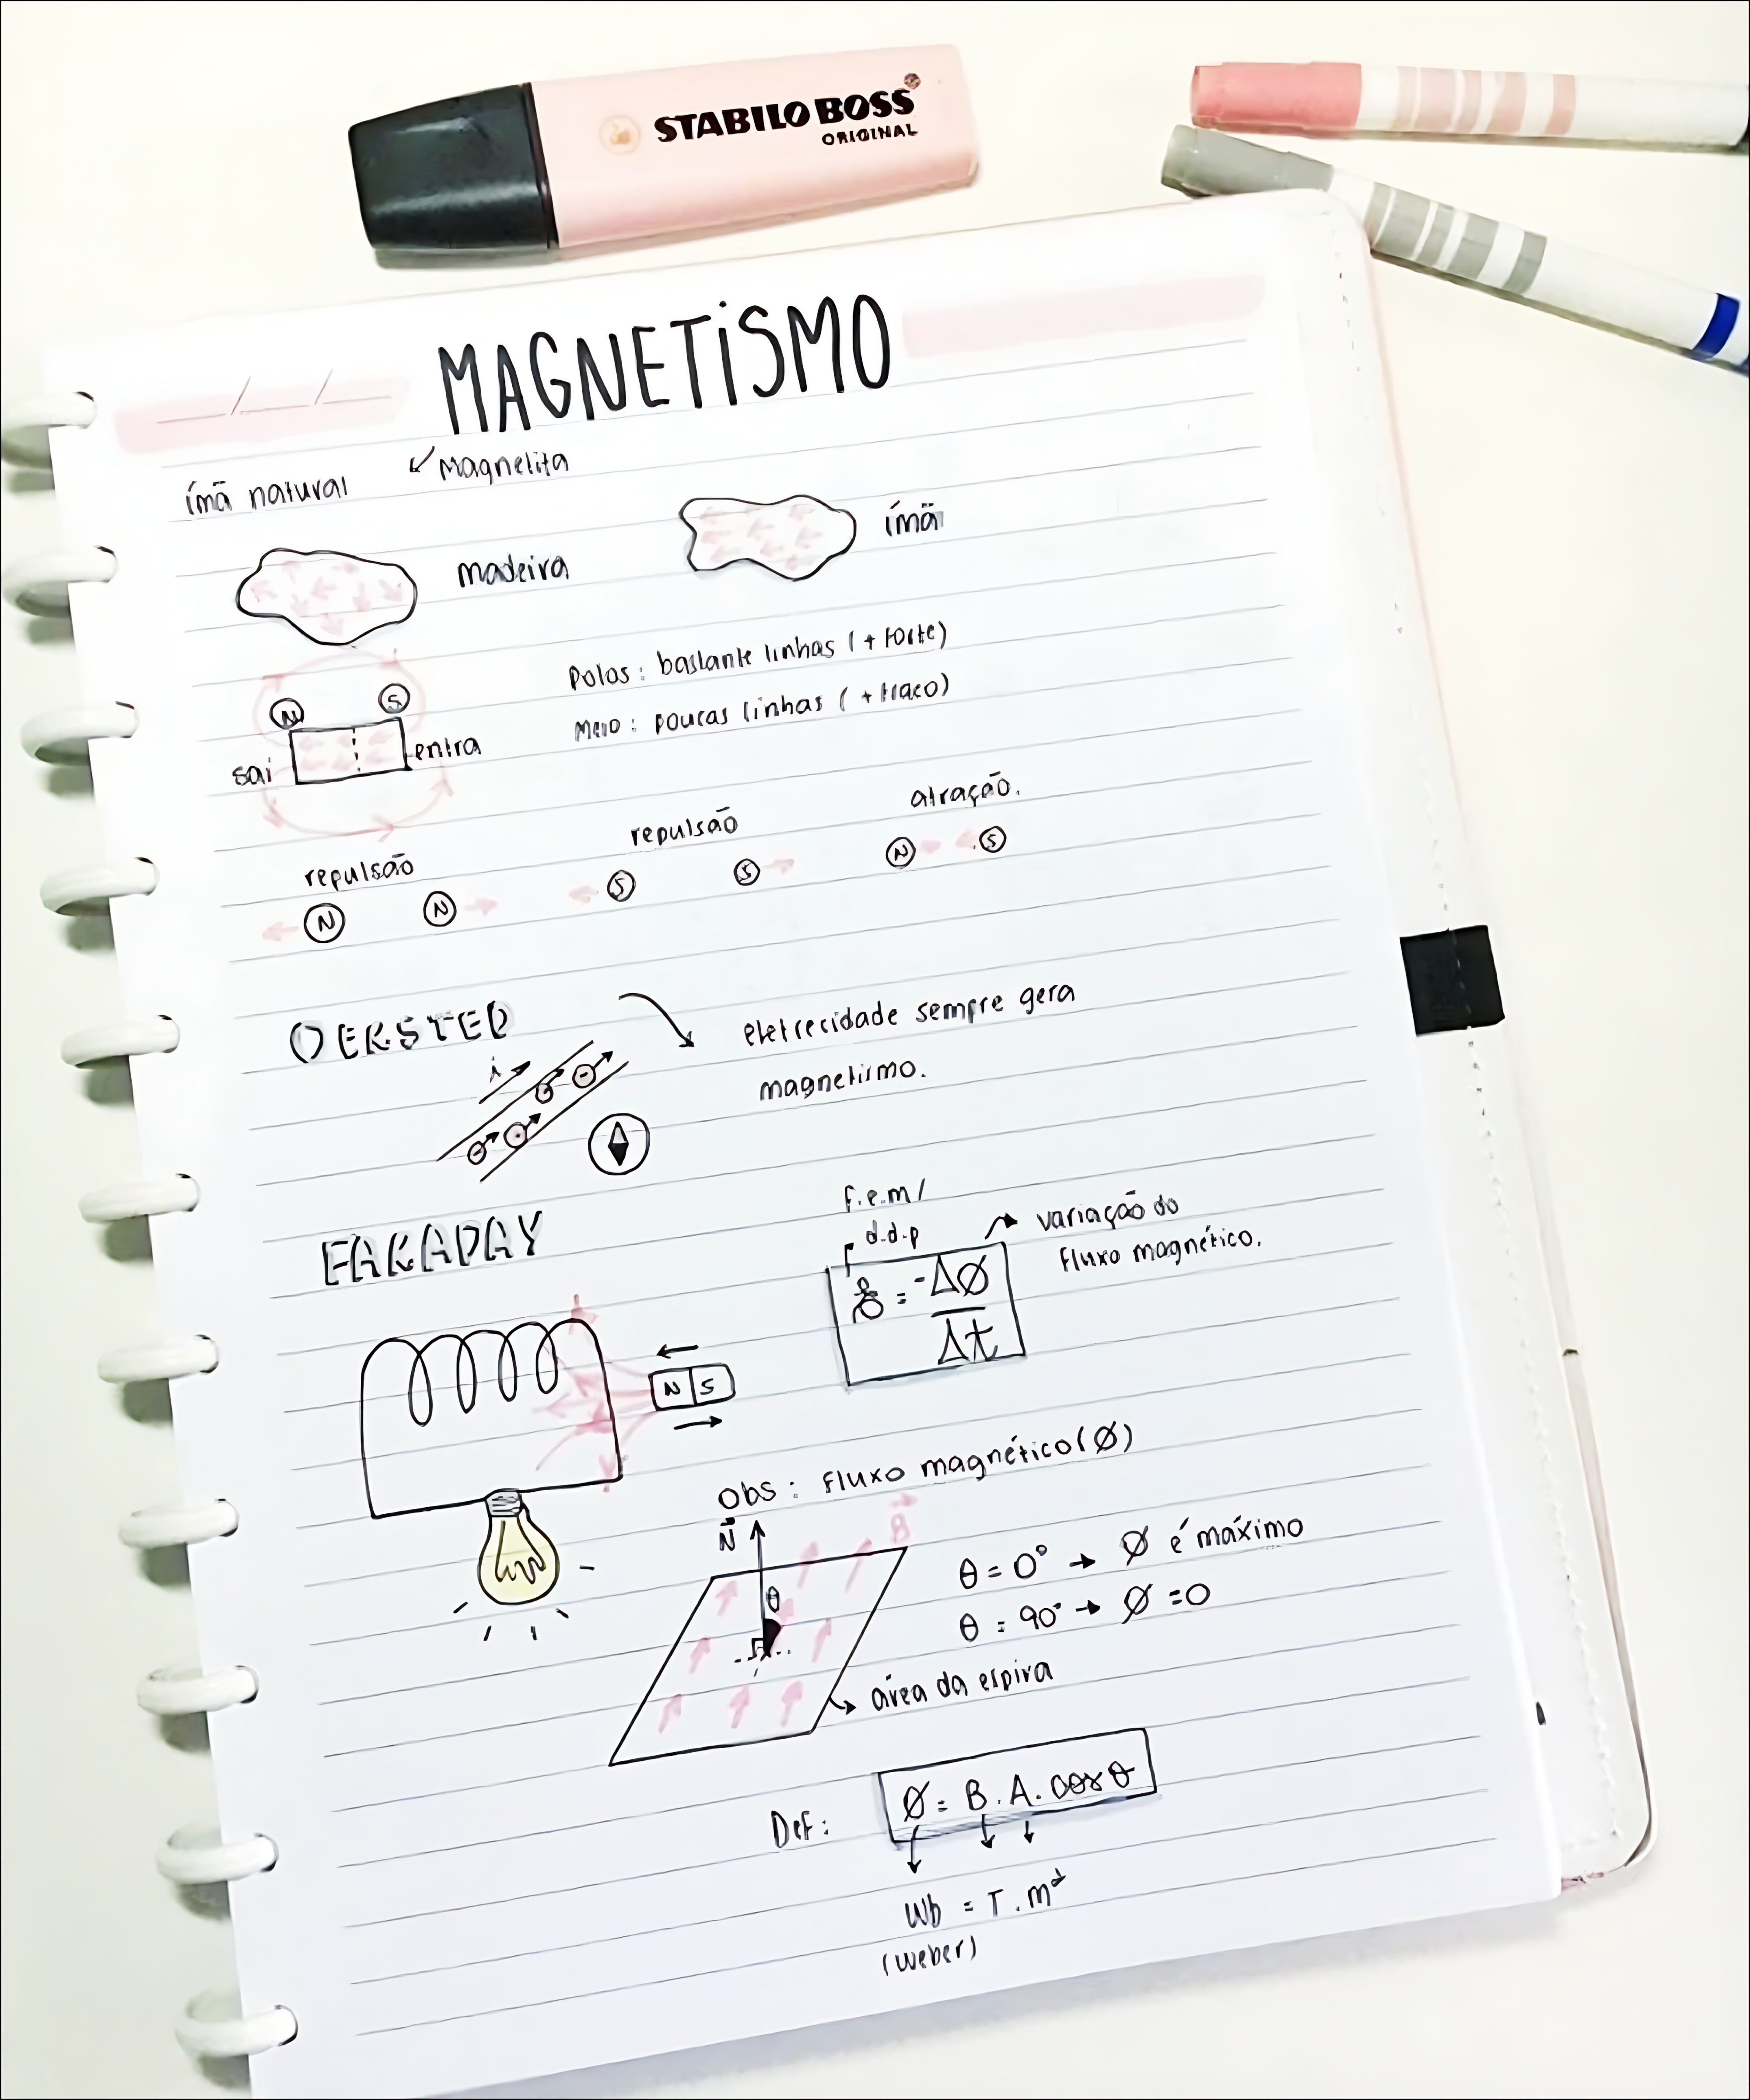 STABILO BOSS
ORIGINAL
MAGNETISMO
ímã natural
magnelita
madeira
ímã
N S
sai
entra
Polos: bastante linhas (+ forte)
Meio: poucas linhas (+ fraco)
repulsão
N N
repulsão
S S
atração.
N S
OERSTED
i
eletrecidade sempre gera
magnetismo.
FARADAY
N S
f.e.m/
d.d.p
variação do
fluxo magnético.
ε = -ΔØ
Δt
Obs: fluxo magnético (Ø)
N
B
θ
θ = 0° → Ø é máximo
θ = 90° → Ø = 0
área da espira
Def:
Ø = B.A.cosθ
Wb = T.m²
(weber)